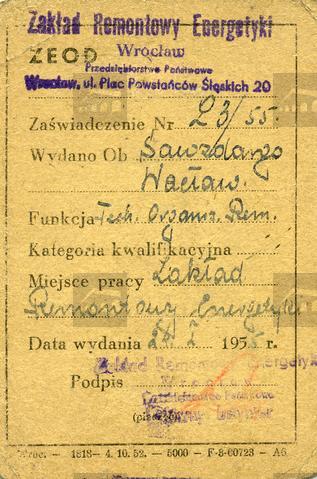 Zakład Remontowy Energetyki
ZEOD Wrocław
Przedsiębiorstwo Państwowe
Wrocław, ul. Plac Powstańców Śląskich 20
Zaświadczenie Nr 23/55.
Wydano Ob.
Wacław.
Funkcja Tech. Organiz. Rem.
Kategoria kwalifikacyjna
Miejsce pracy Zakład
Remontowy Energetyki
Data wydania I 195 r.
Zakład Remontowy Energetyki
Podpis Wrocław
Przedsiębiorstwo Państwowe
— 1818 — 4. 10. 52. — 5000 — F-8-60723 — A6